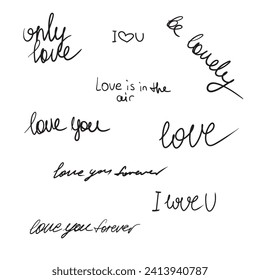 only
love
I♡U
be lovely
Love is in the
air
love you
love
love you forever
I love U
love you forever
shutterstock.com · 2413940787